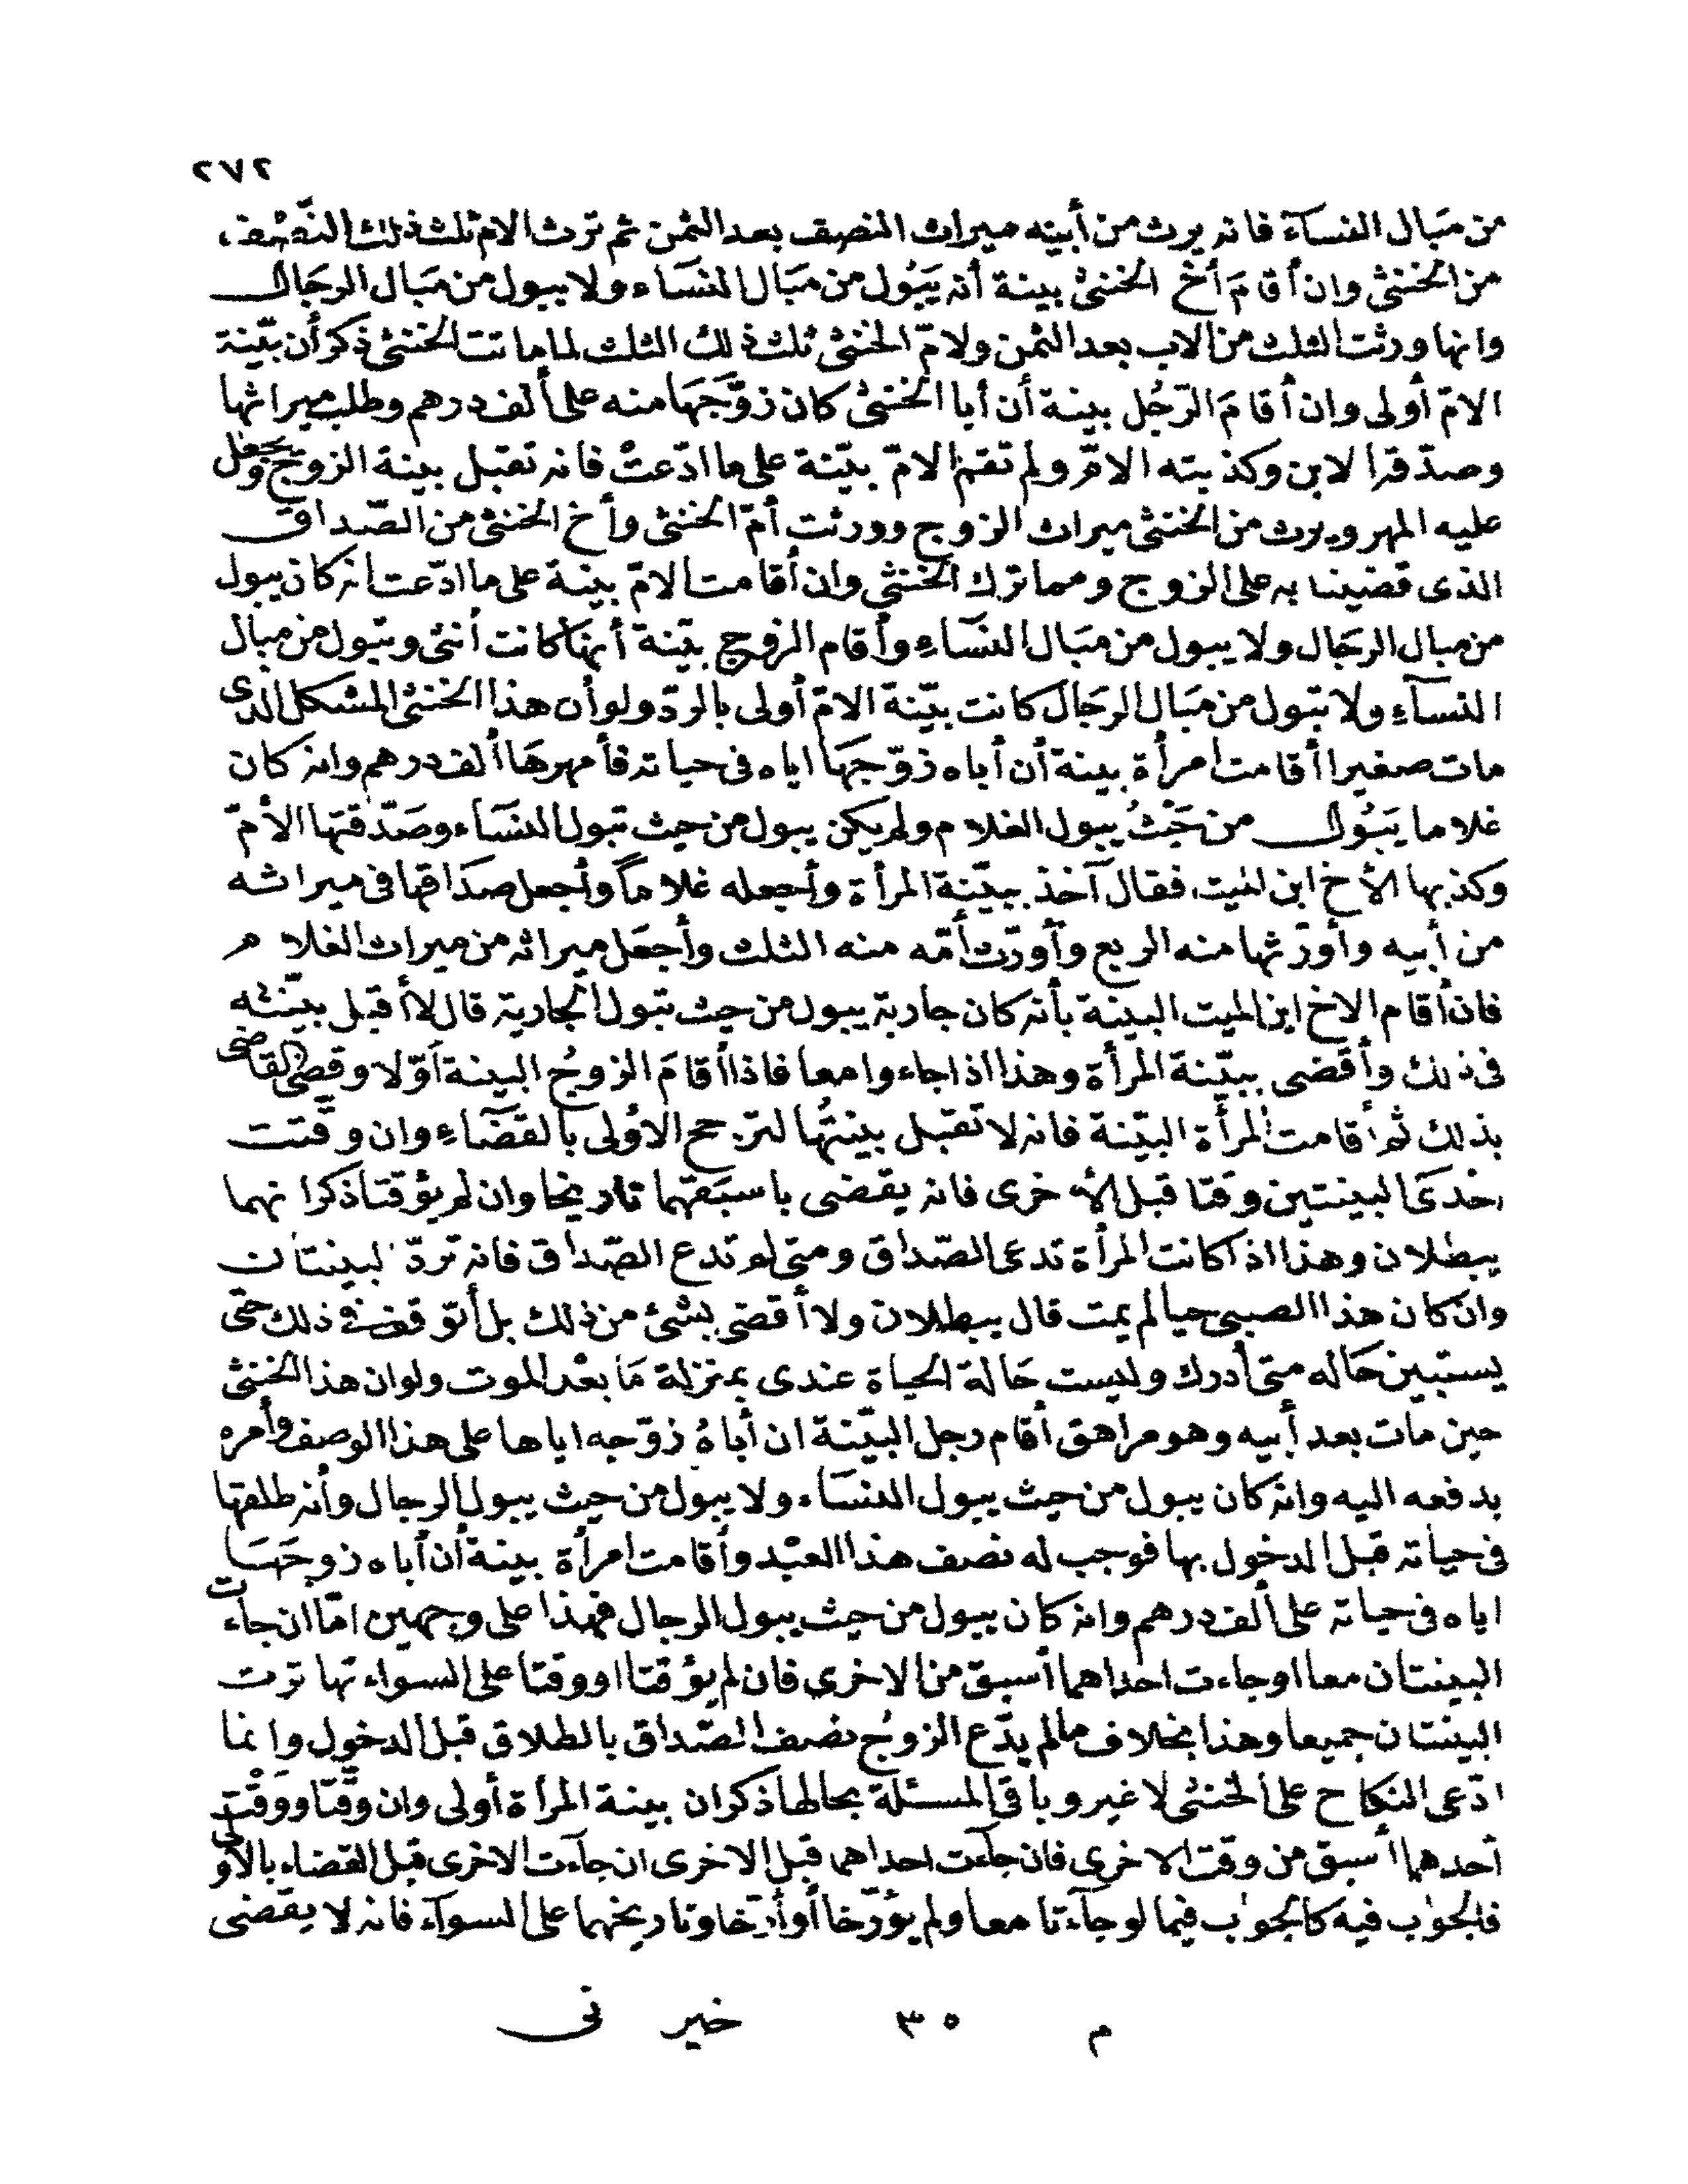 ٢٧٢
من مَبال النسآء فانه يرث من أبيه ميراث النصف بعد الثمن ثم ترث الام ثلث ذلك النّصْف
من الخنثى وان أقامَ أخ الخنثى بينة أنه يَبُول من مَبَال النسَاء ولا يبول من مَبَال الرجَال
وانها ورثت الثلث من الاب بعد الثمن ولامّ الخنثى ثلث ذلك الثلث لما ماتت الخنثى ذكر أن بيّنة
الامّ أولى وان أقامَ الرّجُل بينة أن أبا الخنثى كان زوَّجَهَا منه على ألف درهم وطلب ميراثها
وصدّقه الابن وكذبته الامّ ولم تقم الامّ بيّنة على ما ادّعتْ فانه تقبل بينة الزوج ويجعل
عليه المهر ويرث من الخنثى ميراث الزوج وورثت أمّ الخنثى وأخ الخنثى من الصّداق
الذى قضينا به على الزوج ومما ترك الخنثى وان أقامت الامّ بينة على ما ادّعت انه كان يبول
من مبال الرجَال ولا يبول من مَبَال النسَاءِ وأقام الزوج بيّنة أنها كانت أنثى وتبول من مبال
النسآءِ ولا تبول من مَبَال الرجَال كانت بيّنة الامّ أولى بالردّ ولو أن هذا الخنثى المشكل الذى
مات صغيرا أقامت امرأة بينة أن أباه زوّجَهَا اياه فى حياته فأمهرهَا ألف درهم وانه كان
غلاما يَبُول من حَيْثُ يبول الغلام ولم يكن يبول من حيث تبول النسَاء وصَدّقتها الأمّ
وكذبها الأخ ابن الميت فقال آخذ ببيّنة المرأة وأجعله غلاماً وأجعل صدَاقها فى ميراثه
من أبيه وأورّثها منه الربع وأورّث أمّه منه الثلث وأجعَل ميراثه من ميراث الغلام
فان أقام الاخ ابن الميت البينة بأنه كان جارية يبول من حيث تبول الجارية قال لا أقبل بيّنته
فى ذلك وأقضى ببيّنة المرأة وهذا اذا جاءوا معا فاذا أقامَ الزوجُ البينة أوّلا وقضى القاضى
بذلك ثم أقامت المرأة البيّنة فانه لا تقبل بينتُها لترجح الاولى بالقضَاءِ وان وقّتت
احدَى البينتين وقتا قبل الأخرى فانه يقضى باسبَقهما تاريخا وان لم يؤقتا ذكر انهما
يبطلان وهذا اذا كانت المرأة تدعى الصّداق ومتى لم تدع الصّداق فانه تردّ البينتان
وان كان هذا الصبى حيا لم يمت قال يبطلان ولا أقضى بشئ من ذلك بل أتوقف فى ذلك حتى
يستبين حَاله متى أدرك وليست حَالة الحياة عندى بمنزلة مَا بعْد الموت ولو ان هذا الخنثى
حين مات بعد أبيه وهو مراهق أقام رجل البيّنة ان أباهُ زوّجه اياها على هذا الوصف وأمره
بدفعه اليه وانه كان يبول من حيث يبول النسَاء ولا يبول من حيث يبول الرجال وأنه طلقها
فى حياته قبل الدخول بها فوجب له نصف هذا العبْد وأقامت امرأة بينة أن أباه زوجَهَا
اياه فى حياته على ألف درهم وانه كان يبول من حيث يبول الرجال فهذا على وجهين امّا ان جاءت
البينتان معا او جاءت احداهما أسبق من الاخرى فان لم يؤقتا او وقتا على السواء تهاترت
البينتان جميعا وهذا بخلاف ما لم يدّع الزوجُ نصف الصّداق بالطلاق قبل الدخول وانما
ادّعى النكاح على الخنثى لا غير وباقى المسئلة بحالها ذكر ان بينة المرأة أولى وان وقّتا ووقْت
أحدهما أسبق من وقت الاخرى فان جاءت احداهما قبل الاخرى ان جآءت الاخرى قبل القضاء بالاولى
فالجواب فيه كالجواب فيما لو جآءتا معا ولم يؤرّخا أو أرّخا وتاريخهما على السوآء فانه لا يقضى
م ٣٥ خير نى